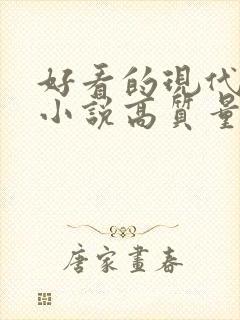 好看的現代
小說高質量
唐家畫春